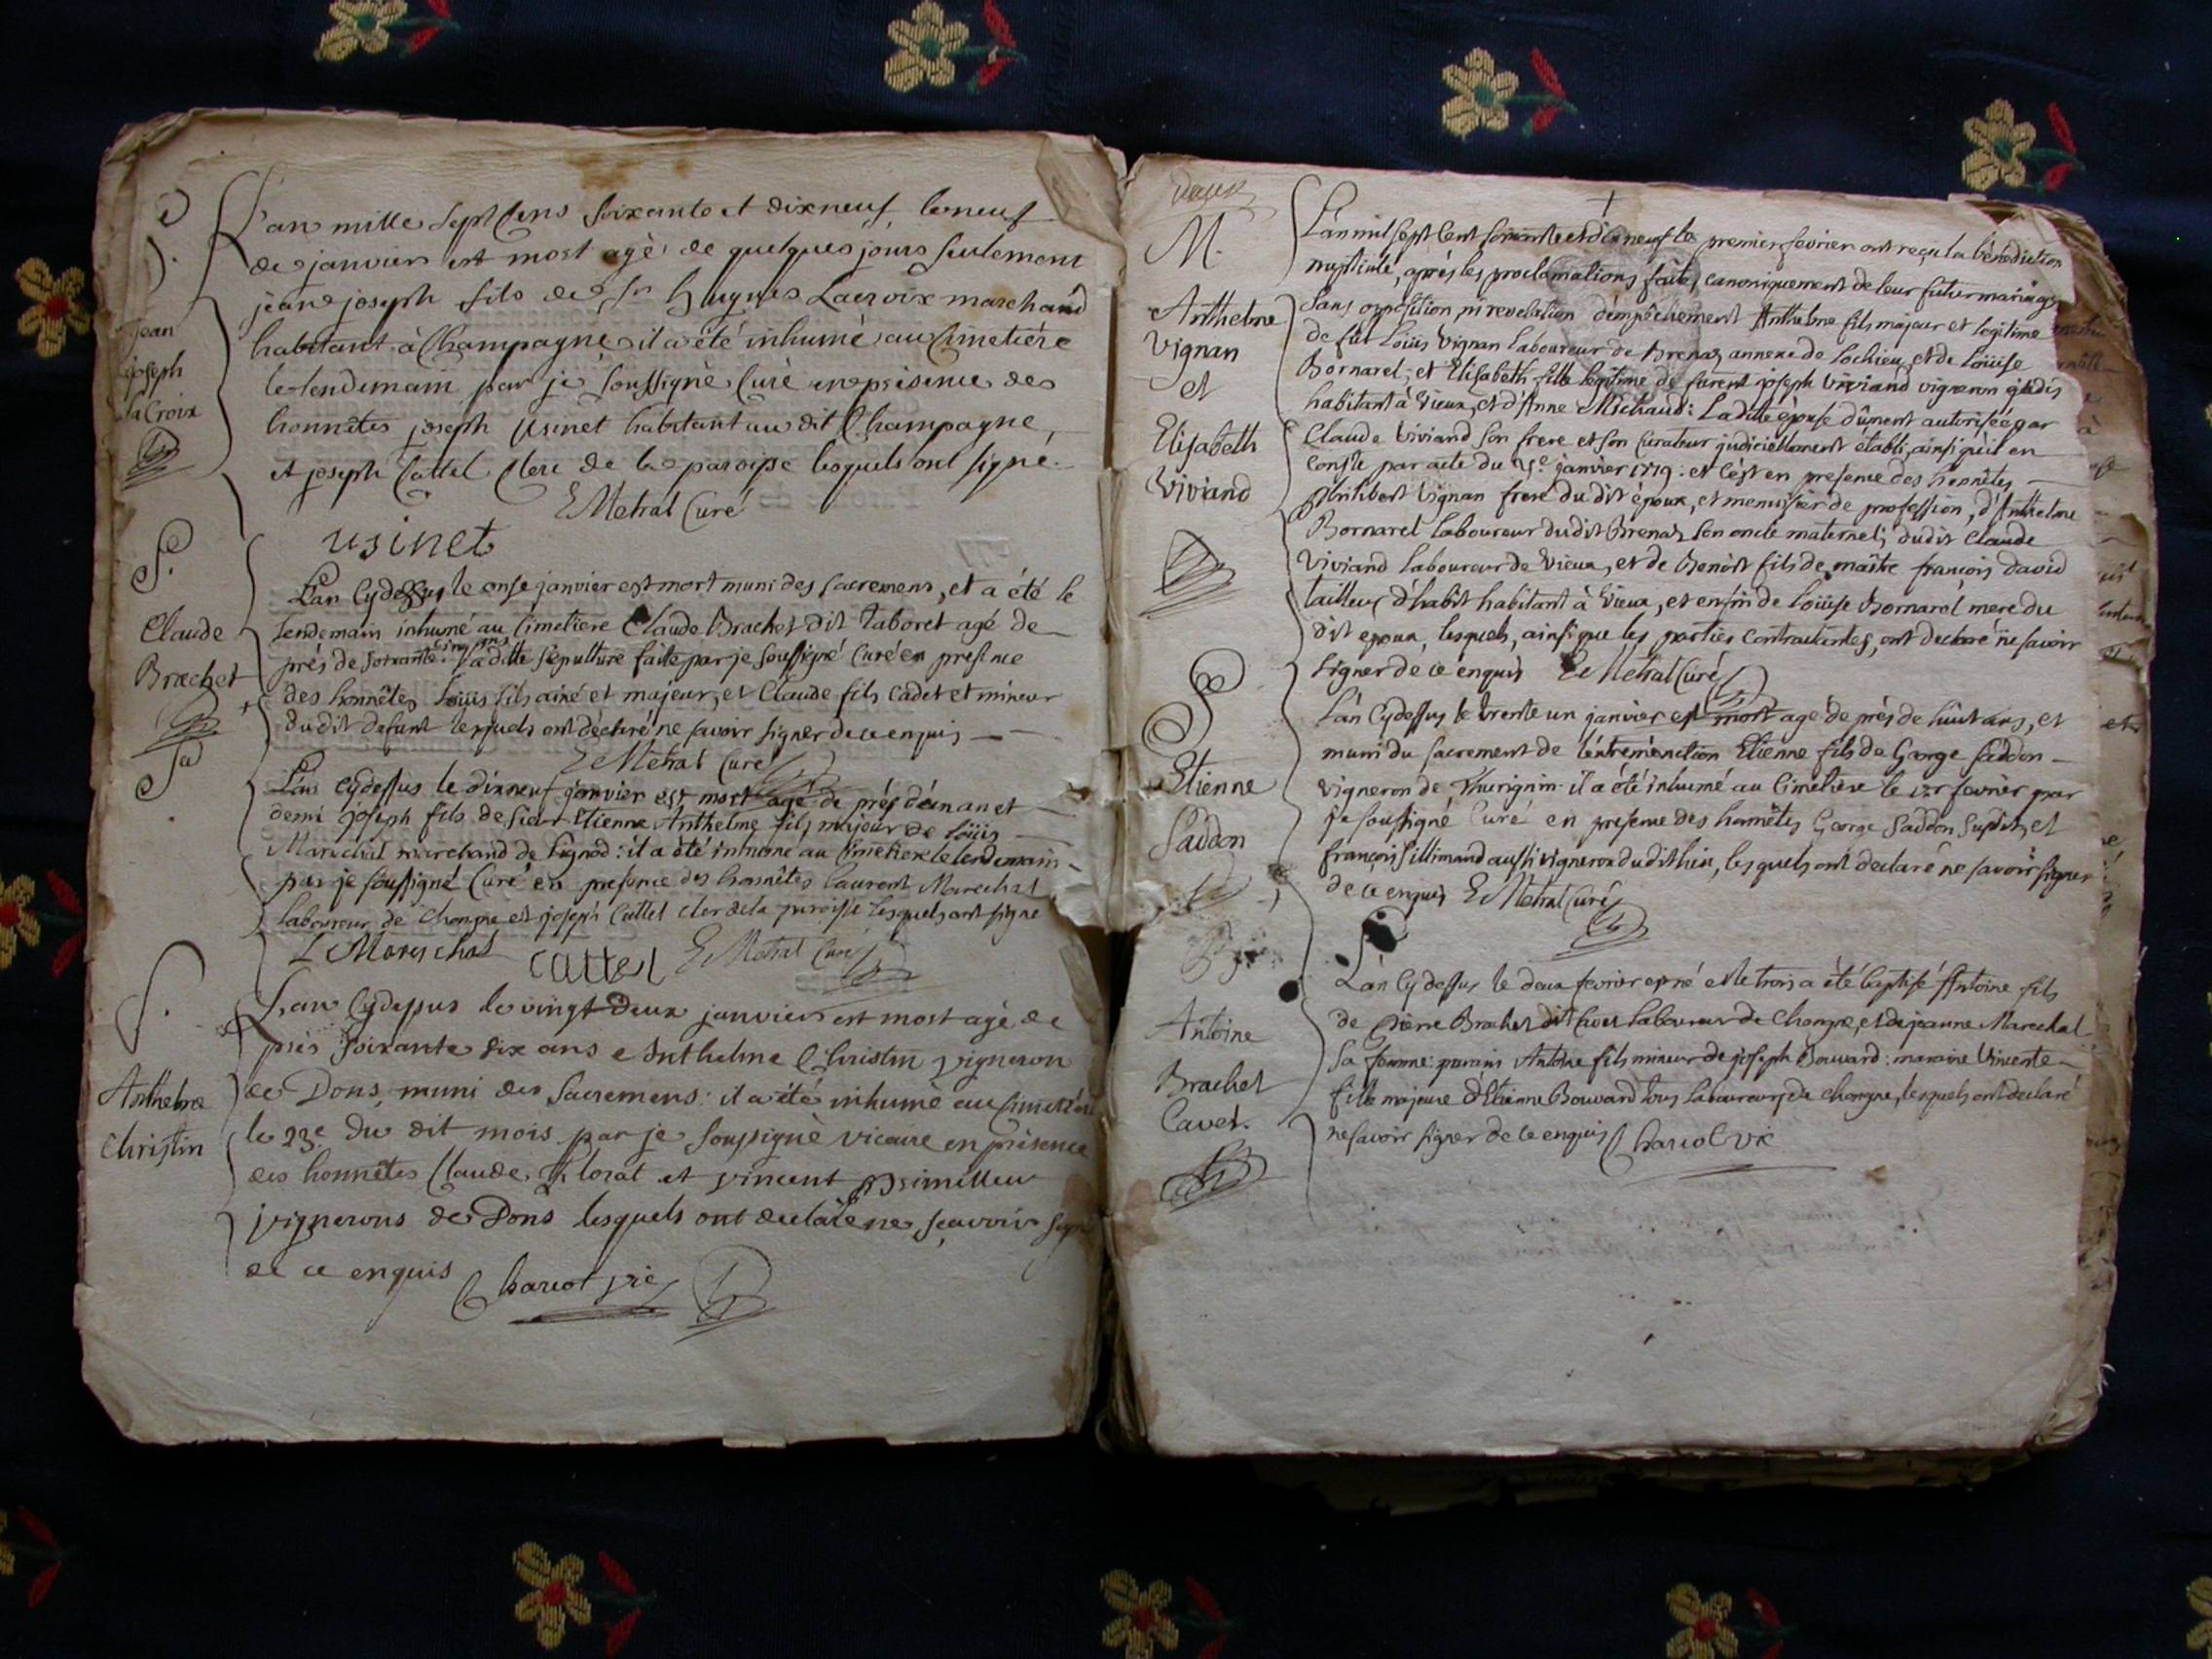 L'an mille sept Cens soixante et dixneuf le neuf
de janvier est mort agé de quelques jours seulement
jean joseph fils de Sr hugues Lacroix marchand
habitant à Champagne il a été inhumé au Cimetière
le lendemain par je soussigné Curé en présence des
honnêtes joseph Usinet habitant au dit Champagne,
et joseph Cattel Clerc de la paroisse lesquels ont signé.
E Metral Curé
usinet
jean
joseph
laCroix
S.
Claude
Brachet
L'an Cydessus le onse janvier est mort muni des sacremens, et a été le
lendemain inhumé au Cimetiere Claude Brachet dit Taboret agé de
près de soixante cinq ans: la ditte sepulture faite par je soussigné Curé en presence
des honnêtes Loüis fils ainé et majeur, et Claude fils cadet et mineur
du dit defunt lesquels ont déclaré ne savoir signer de ce enquis
E Metral Curé
S
L'an cydessus le dixneuf janvier est mort agé de près d'un an et
demi joseph fils de sieur Etienne Anthelme fils majeur de Loüis
Marechal marchand de Lignod: il a été inhumé au Cimetiere le lendemain
par je soussigné Curé en presence des honnêtes laurent Marechal
laboureur de Chongne et joseph Cattel clerc de la paroisse lesquels ont signé
L Mareschal Cattel E Metral Curé
S.
Anthelme
Christin
L'an Cydessus le vingt Deux janvier est mort agé de
près soixante dix ans Anthelme Christin vigneron
de Dons, muni des Sacremens: il a été inhumé au Cimetière
le 23e du dit mois par je soussigné vicaire en présence
des honnêtes Claude Florat et vincent Primilleu
vignerons de Dons lesquels ont declaré ne sçavoir signe
de ce enquis Charcot vic
deux
M.
Anthelme
Vignan
et
Elisabeth
Viviand
L'an mil sept Cent soixante et dix neuf le premier fevrier ont reçu la bénédiction
nuptiale, après les proclamations faites canoniquement de leur futur mariage
sans opposition ni revelation d'empêchement Anthelme fils majeur et legitime
de fût Loüis Vignan laboureur de Brenaz annexe de Lochieu, et de Loüise
Bornarel; et Elisabeth fille legitime de furent joseph Viviand vigneron jadis
habitant à Vieux, et d'Anne Michaud: la ditte épouse dûment autorisée par
Claude Viviand son frere et son Curateur judiciellement établi, ainsi qu'il en
Conste par acte du janvier 1779: et C'est en presence des honnêtes
philibert Vignan frere du dit époux, et menuisier de profession, d'Anthelme
Bornarel laboureur dudit Brenaz son oncle maternel; dudit Claude
Viviand laboureur de Vieux, et de Benoît fils de maître françois david
tailleur d'habit habitant à Vieux, et enfin de loüise Bornarel mere du
dit epoux, lesquels, ainsi que les parties Contractantes, ont declaré ne savoir
signer de ce enquis E Metral Curé
S
Etienne
Saddon
L'an Cydessus le trente un janvier est mort agé de près de huit ans, et
muni du sacrement de l'extrêmonction Etienne fils de George Saddon
vigneron de Thurignin: il a été inhumé au Cimetiere le 1er fevrier par
je soussigné Curé en presence des honnêtes George Saddon susdit, et
françois Sillimand aussi vigneron dudit lieu, lesquels ont declaré ne savoir signer
de ce enquis E Metral Curé
B
Antoine
Brachet
Cavet.
L'an Cydessus le deux fevrier est né et le trois a été baptisé Antoine fils
de Pierre Brachet dit Cavet laboureur de Chongne, et de jeanne Marechal
sa femme: parain Antoine fils mineur de joseph Bouvard: maraine Vincente
fille majeure d'Etienne Bouvard tous laboureurs de Chongne, lesquels ont declaré
ne savoir signer de ce enquis Charcot vic